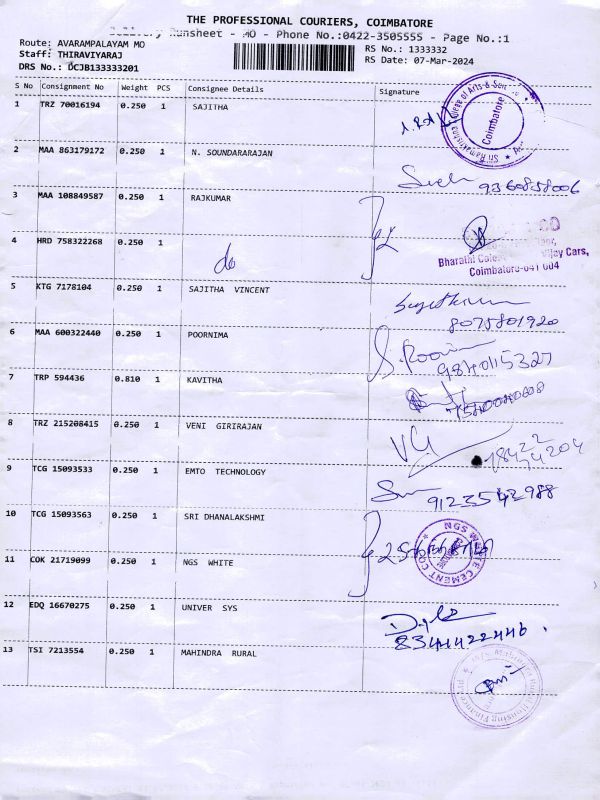 THE PROFESSIONAL COURIERS, COIMBATORE
Delivery Runsheet - MO - Phone No.:0422-3505555 - Page No.:1
Route: AVARAMPALAYAM MO
Staff: THIRAVIYARAJ
RS No.: 1333332
DRS No.: DCJB133333201
RS Date: 07-Mar-2024
S No Consignment No Weight PCS Consignee Details Signature
1 TRZ 70016194 0.250 1 SAJITHA
Coimbatore
2 MAA 863179172 0.250 1 N. SOUNDARARAJAN
9360858006
3 MAA 108849587 0.250 1 RAJKUMAR
4 HRD 758322268 0.250 1
do
Vijay Cars,
Coimbatore-641 004
5 KTG 7178104 0.250 1 SAJITHA VINCENT
8075801920
6 MAA 600322440 0.250 1 POORNIMA
9840115327
7 TRP 594436 0.810 1 KAVITHA
8 TRZ 215208415 0.250 1 VENI GIRIRAJAN
VG
9 TCG 15093533 0.250 1 EMTO TECHNOLOGY
9123542988
10 TCG 15093563 0.250 1 SRI DHANALAKSHMI
11 COK 21719099 0.250 1 NGS WHITE
NGS WHITE CEMENT CO
12 EDQ 16670275 0.250 1 UNIVER SYS
8344422446.
13 TSI 7213554 0.250 1 MAHINDRA RURAL